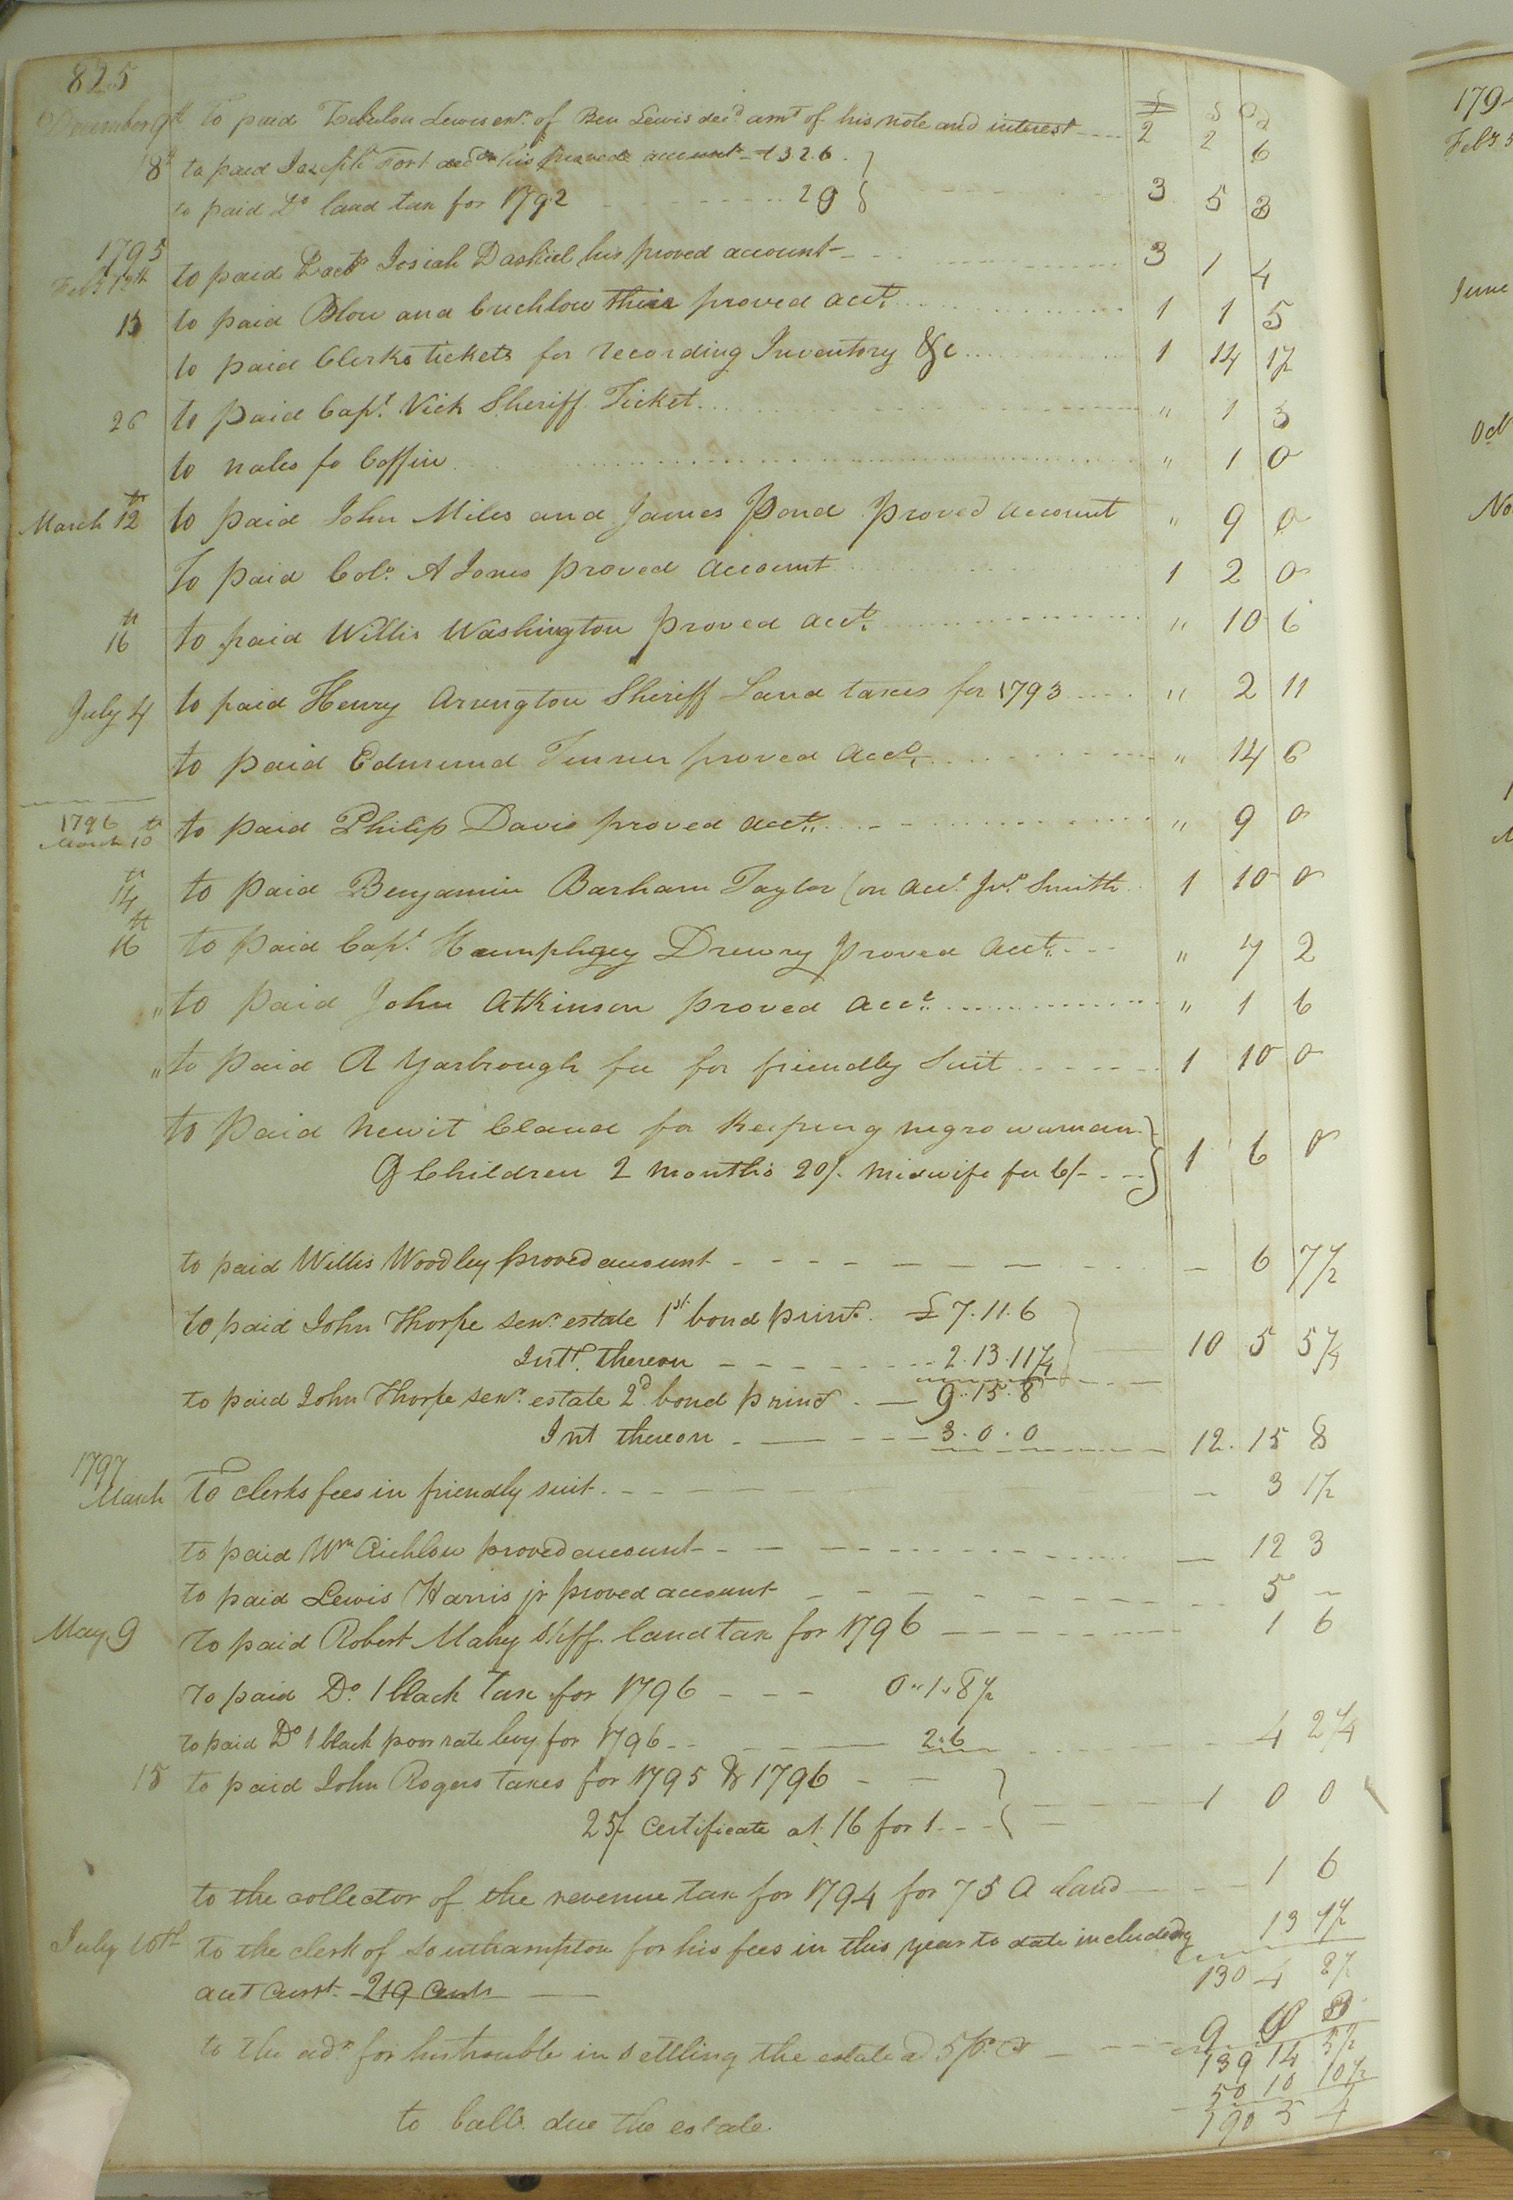 825
£ S D
December 9th To paid Zebulon Lewis exr. of Ben Lewis decd. amt of his note and interest 2 2 6
18th to paid Joseph Fort his proved account £3 2.6
to paid Do land tax for 1792 2 9 3 5 3
1795
Feby 13th to paid Doctr Josiah Dashiel his proved account 3 1 4
15 to paid Blow and Cuchlow their proved acct. 1 1 5
to paid Clerks tickets for recording Inventory &c 1 14 1½
26 to paid Capt. Vick Sheriff Ticket " 1 3
to nales fo Coffin " 1 0
March 12th to paid John Miles and James Pond proved account " 9 0
To paid Colo. A Jones proved account 1 2 0
16th to paid Willis Washington proved acct. " 10 6
July 4 to paid Henry Arrington Sheriff Land taxes for 1793 " 2 11
to paid Edmund Turner proved acct. " 14 6
1796
March 10th to paid Philip Davis proved acct. " 9 0
14th to paid Benjamin Barham Taylor (on acct. Jno. Smith 1 10 0
16th to paid Capt. Humphrey Drewry proved acct. " 7 2
" to paid John Atkinson proved acct. " 1 6
" to paid A Yarbrough fee for friendly Suit 1 10 0
to paid Newit Claud for Keeping negro woman
& Children 2 months 20/. midwife fee 6/- 1 6 0
to paid Willis Woodley proved account – 6 7½
to paid John Thorpe senr. estate 1st. bond princ. £7.11.6
Intt. thereon 2.13.11¼ 10 5 5¼
to paid John Thorpe senr. estate 2d. bond princ 9.15.8
Int thereon 3.0.0 12. 15 8
1797
March To clerks fees in friendly suit – 3 1½
to paid Wm Cichlow proved account – 12 3
to paid Lewis Harris jr proved account 5 –
May 9 To paid Robert Mabry S'iff. land tax for 1796 1 6
To paid Do. 1 black Tax for 1796 0"1"8½
to paid Do 1 black poor rate levy for 1796 2.6 4 2¼
15 to paid John Rogers taxes for 1795 & 1796
25/ certificate at 16 for 1 1 0 0
to the collector of the revenue tax for 1794 for 75 A land 1 6
July 10th to the clerk of Southampton for his fees in this year to date including 13
act Currt. 219 Cents 130 4
to the adr. for his trouble in settling the estate a 5 pr. Ct 9
139 14 5½
50 10 10½
to ball. due the estate. 190 5 4